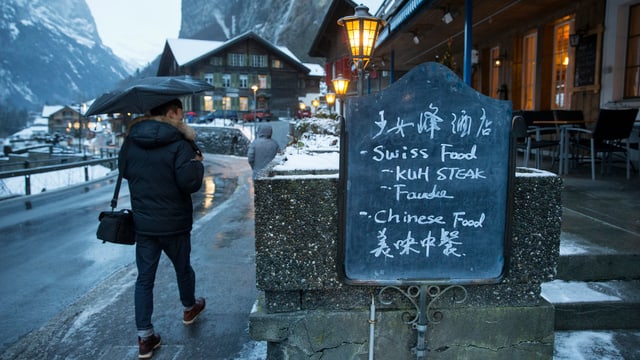 少女峰酒店
- Swiss Food
- KUH STEAK
- Fondue
- Chinese Food
美味中餐